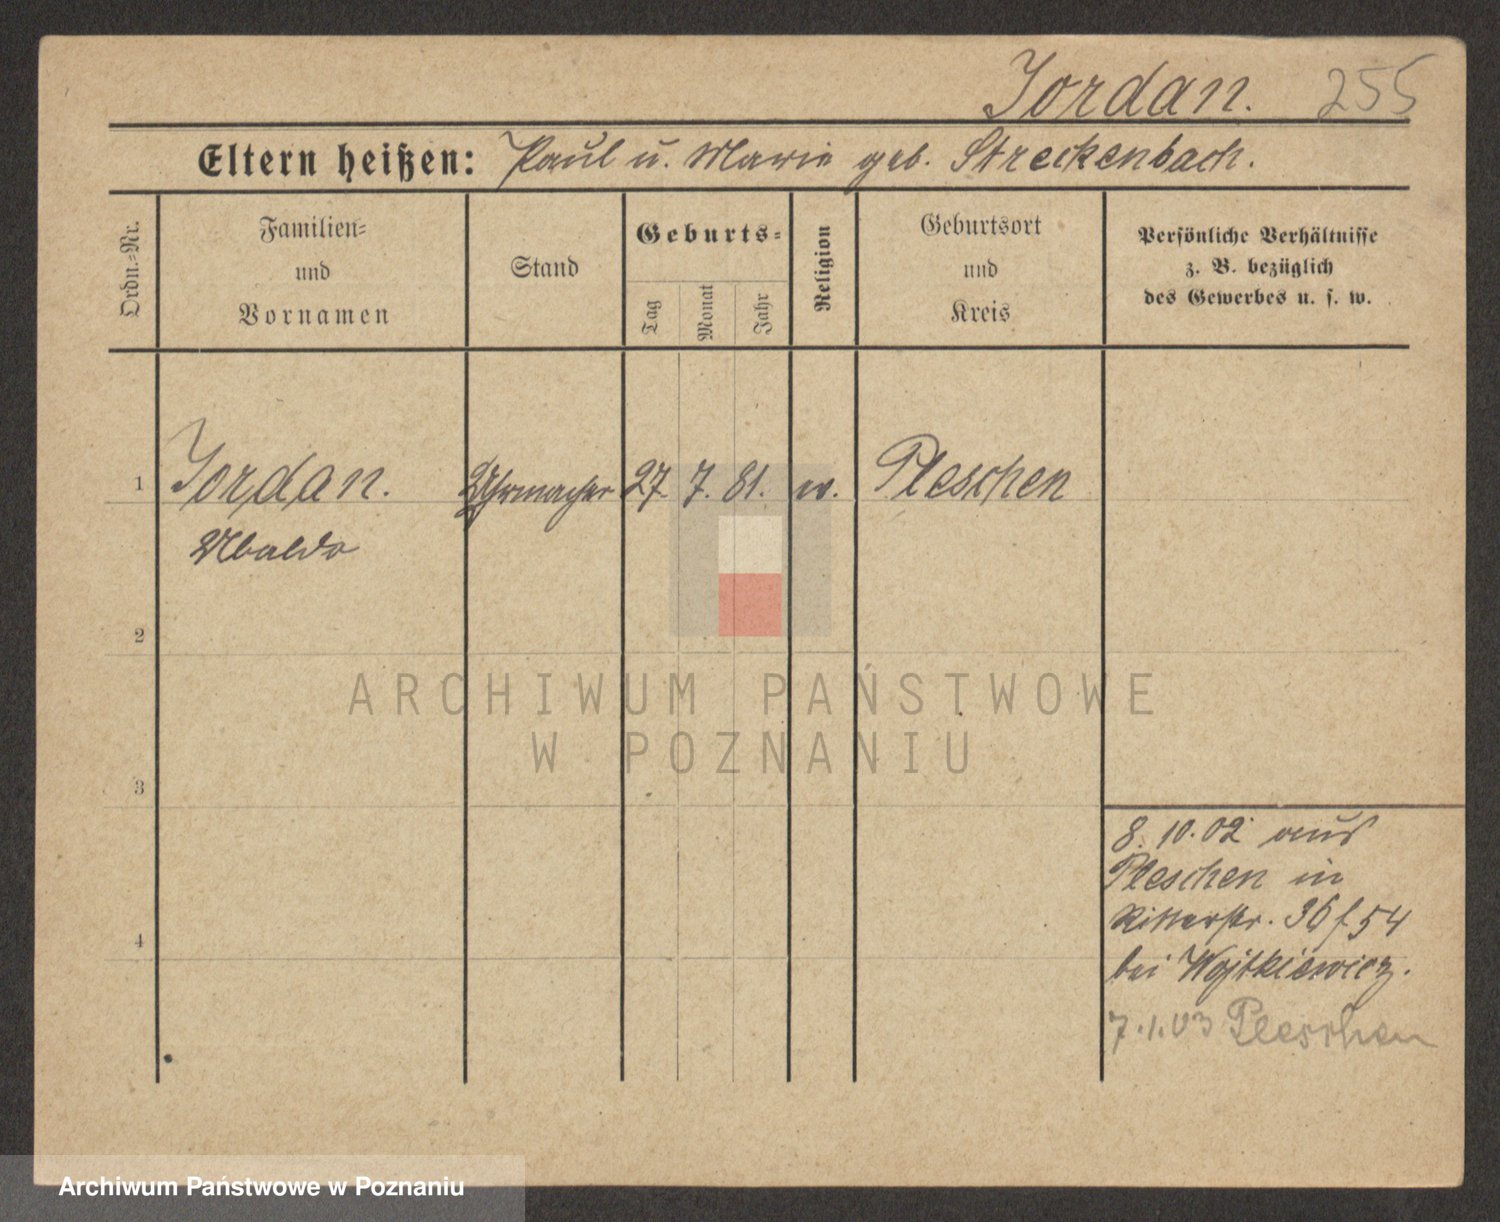 Jordan. 255
Eltern heißen: Paul u. Marie geb. Streckenbach.
Ordn.-Nr.
Familien-
und
Vornamen
Stand
Geburts-
Tag
Monat
Jahr
Religion
Geburtsort
und
Kreis
Persönliche Verhältnisse
z. B. bezüglich
des Gewerbes u. s. w.
1 Jordan. Uhrmacher 27. 7. 81. ev. Pleschen
Ubaldo
2
3
4
8. 10. 02 aus
Pleschen in
Ritterstr. 36 f 54
bei Wojtkiewicz.
7.1.03 Pleschen
ARCHIWUM PAŃSTWOWE
W POZNANIU
Archiwum Państwowe w Poznaniu